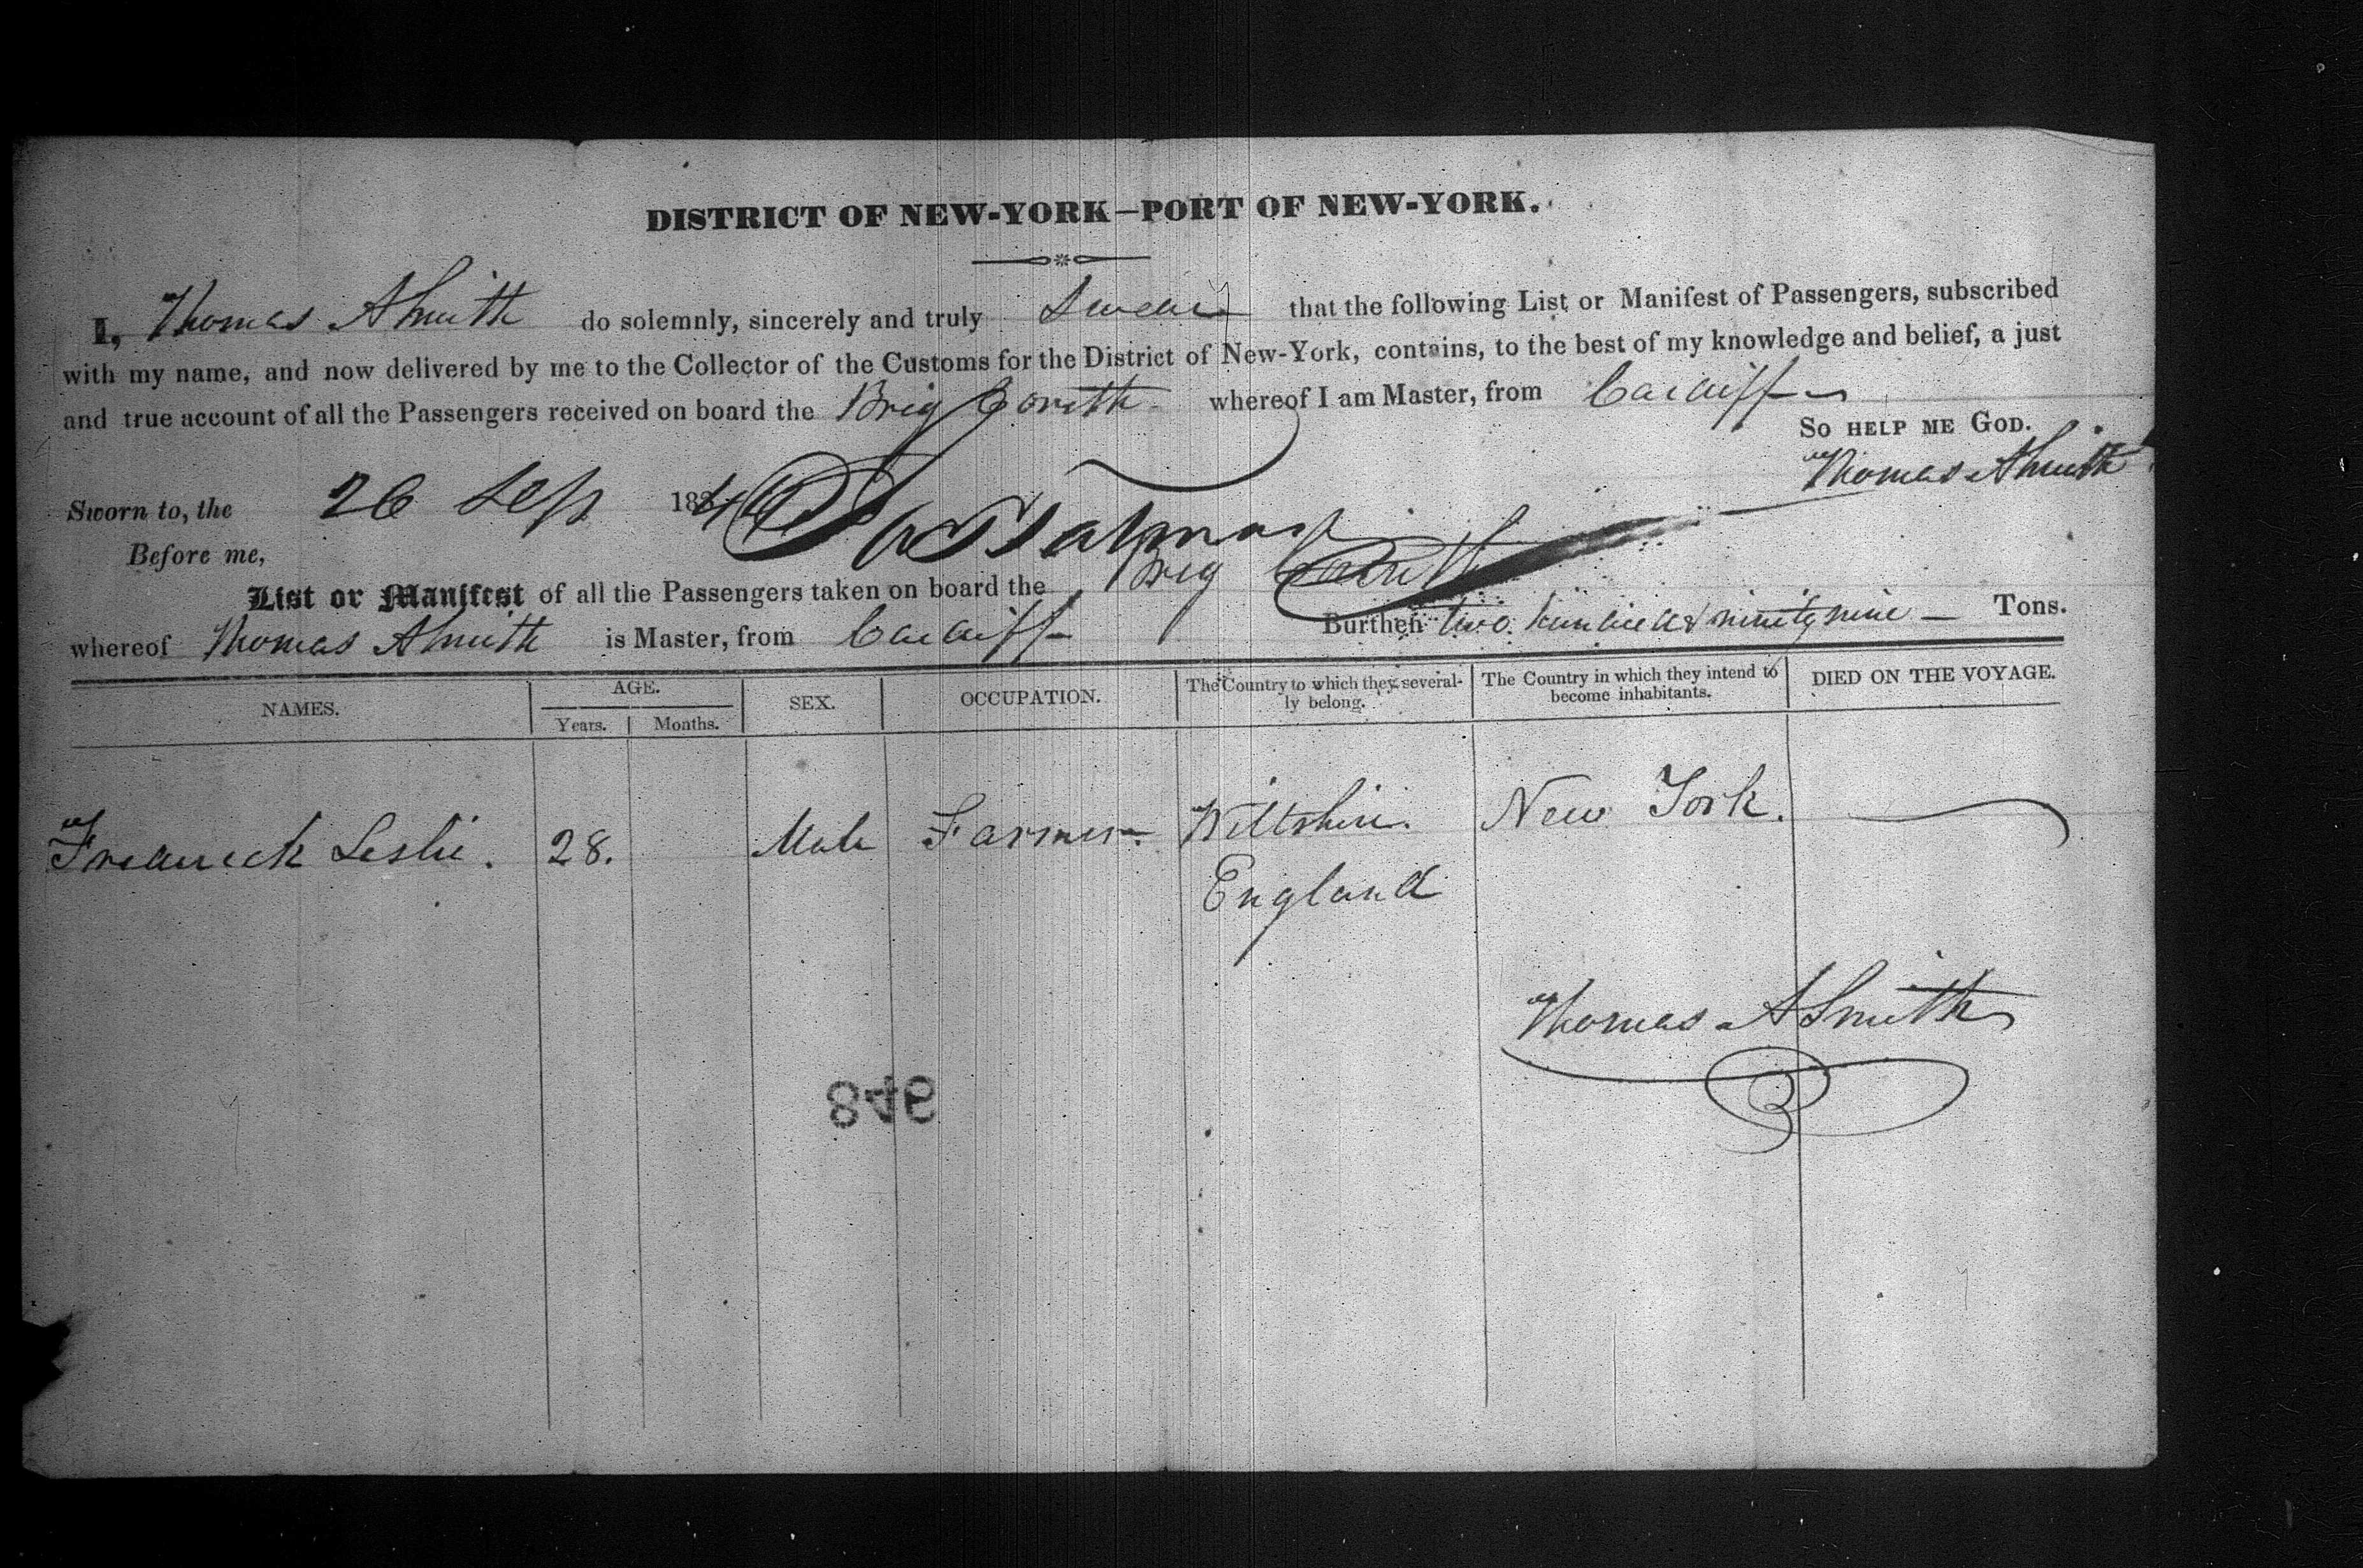 DISTRICT OF NEW-YORK—PORT OF NEW-YORK.
I, Thomas A Smith do solemnly, sincerely and truly Swear that the following List or Manifest of Passengers, subscribed
with my name, and now delivered by me to the Collector of the Customs for the District of New-York, contains, to the best of my knowledge and belief, a just
and true account of all the Passengers received on board the Brig whereof I am Master, from Cardiff
SO HELP ME GOD.
Thomas A Smith
Sworn to, the 26 Sep 184
Before me,
List or Manifest of all the Passengers taken on board the Brig
whereof Thomas A Smith is Master, from Cardiff Burthen two hundred & ninety nine — Tons.
NAMES. AGE. SEX. OCCUPATION. The Country to which they several-ly belong. The Country in which they intend to become inhabitants. DIED ON THE VOYAGE.
Years. Months.
Frederick Leslie. 28. Male Farmer. Wiltshire. New York. —
England
Thomas A Smith
846